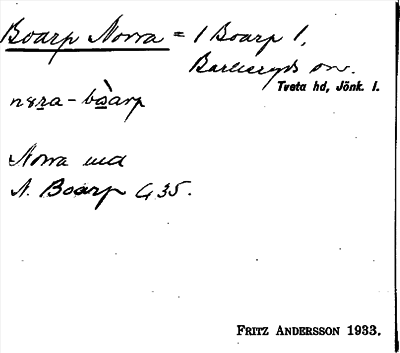 Boarp Norra = 1 Boarp 1,
Barkeryds sn.
Tveta hd, Jönk. l.
nɷra - bòarp
Norra med
N. Boarp G 35.
FRITZ ANDERSSON 1933.